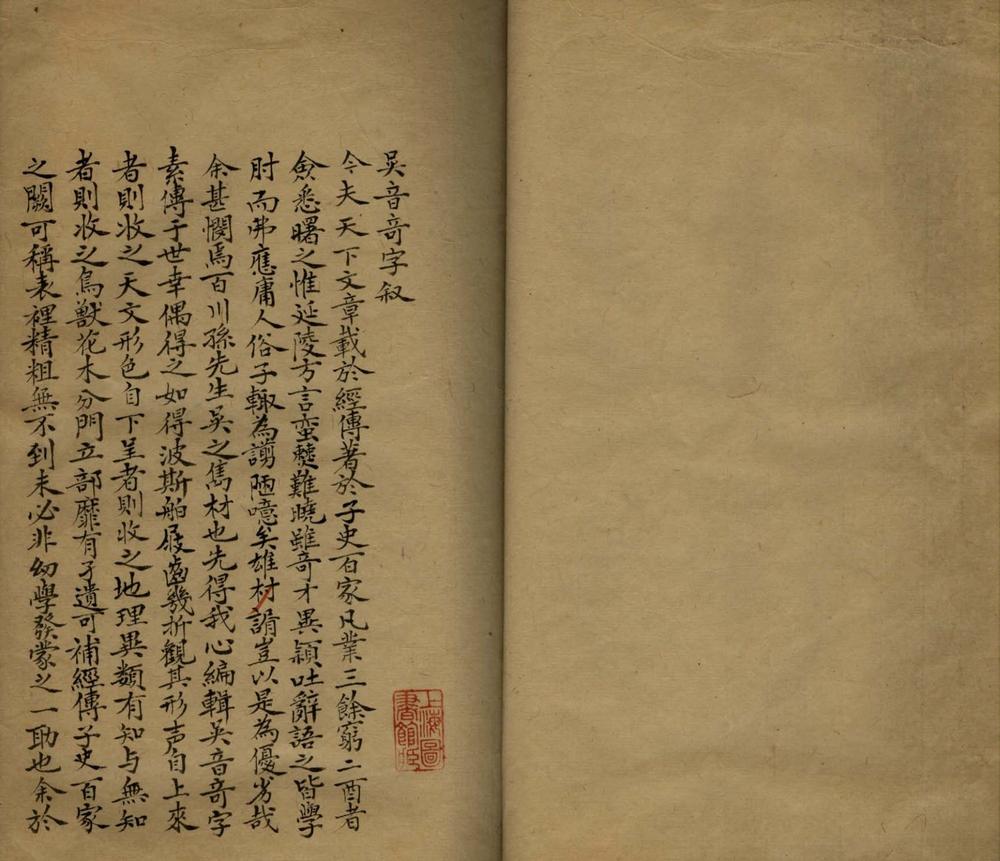 吴音奇字叙
今夫天下文章載於經傳著於子史百家凡業三餘窮二酉者
僉悉曙之惟延陵方言蛮𩐳難曉雖奇才異穎吐辭語之皆學
肘而弗應庸人俗子輙為謭陋噫矣雄材謭豈以是為優劣哉
余甚憫焉百川孫先生吴之雋材也先得我心編輯吴音奇字
素傳于世幸偶得之如得波斯舶屐齒幾折觀其形声自上來
者則收之天文形色自下呈者則收之地理異類有知与無知
者則收之鳥獸花木分門立部靡有孑遺可補經傳子史百家
之闕可稱表裡精粗無不到未必非幼學發蒙之一助也余於
上海圖書館藏